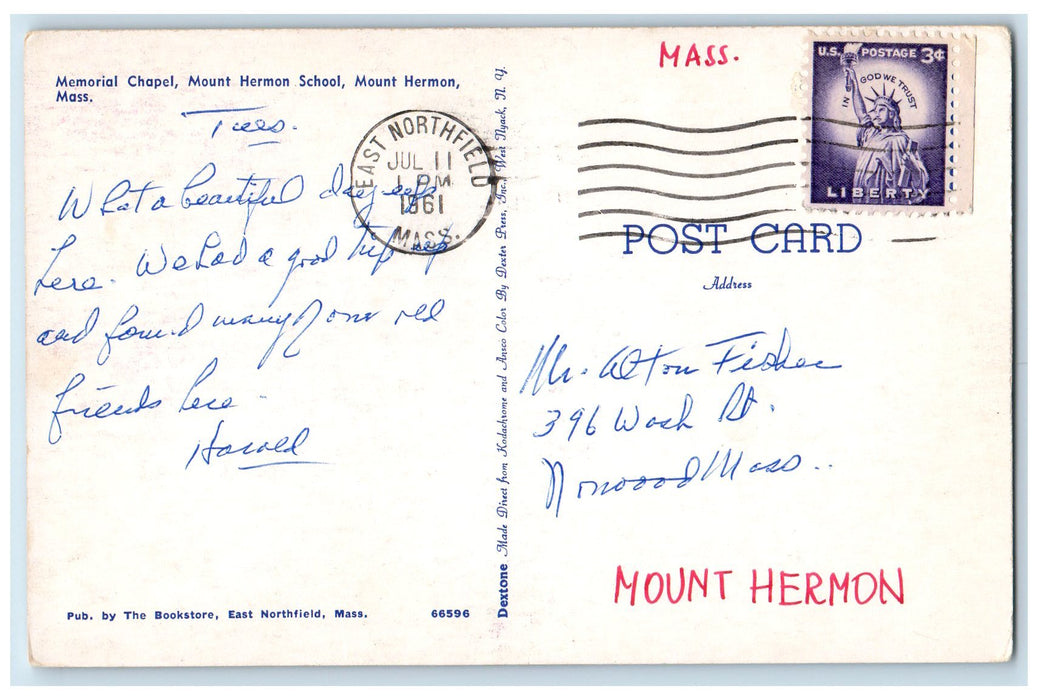 Memorial Chapel, Mount Hermon School, Mount Hermon,
Mass.
Tues.
What a beautiful day up
here. We had a good trip up
and found many of our old
friends here.
Harold
Pub. by The Bookstore, East Northfield, Mass. 66596
EAST NORTHFIELD
JUL 11
1 PM
1961
MASS.
Dextone Made Direct from Kodachrome and Ansco Color By Dexter Press, Inc., West Nyack, N. Y.
MASS.
U.S. POSTAGE 3¢
IN GOD WE TRUST
LIBERTY
POST CARD
Address
Mr. Alton Fisher
396 Wash St.
Norwood Mass..
MOUNT HERMON